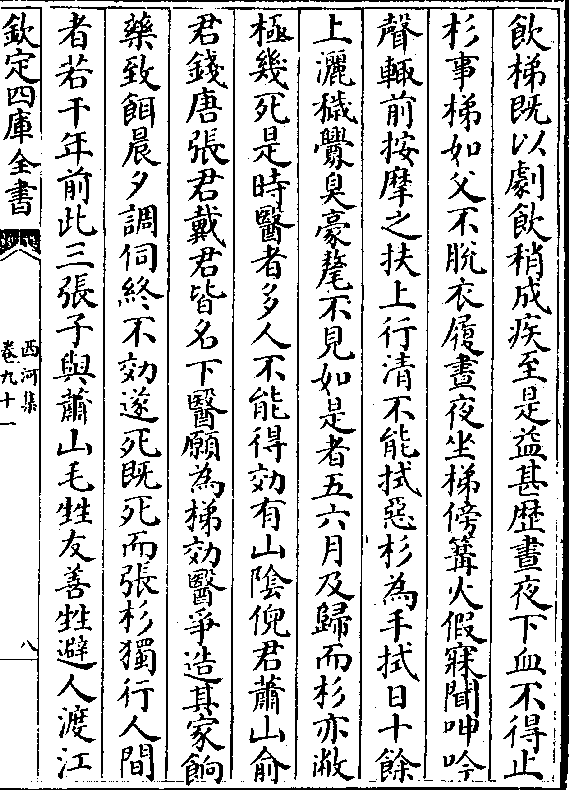 飲梯既以劇飲稍成疾至是益甚歴晝夜下血不得止
杉事梯如父不脫衣履晝夜坐梯傍篝火假寐聞呻吟
聲輙前按摩之扶上行清不能拭惡杉為手拭日十餘
上灑穢釁臭豪氂不見如是者五六月及歸而杉亦敝
極幾死是時醫者多人不能得効有山陰倪君蕭山俞
君錢唐張君戴君皆名下醫願為梯効醫爭造其家餉
藥致餌晨夕調伺終不効遂死既死而張杉獨行人間
者若干年前此三張子與蕭山毛甡友善甡避人渡江
欽定四庫全書
西河集
卷九十一
八